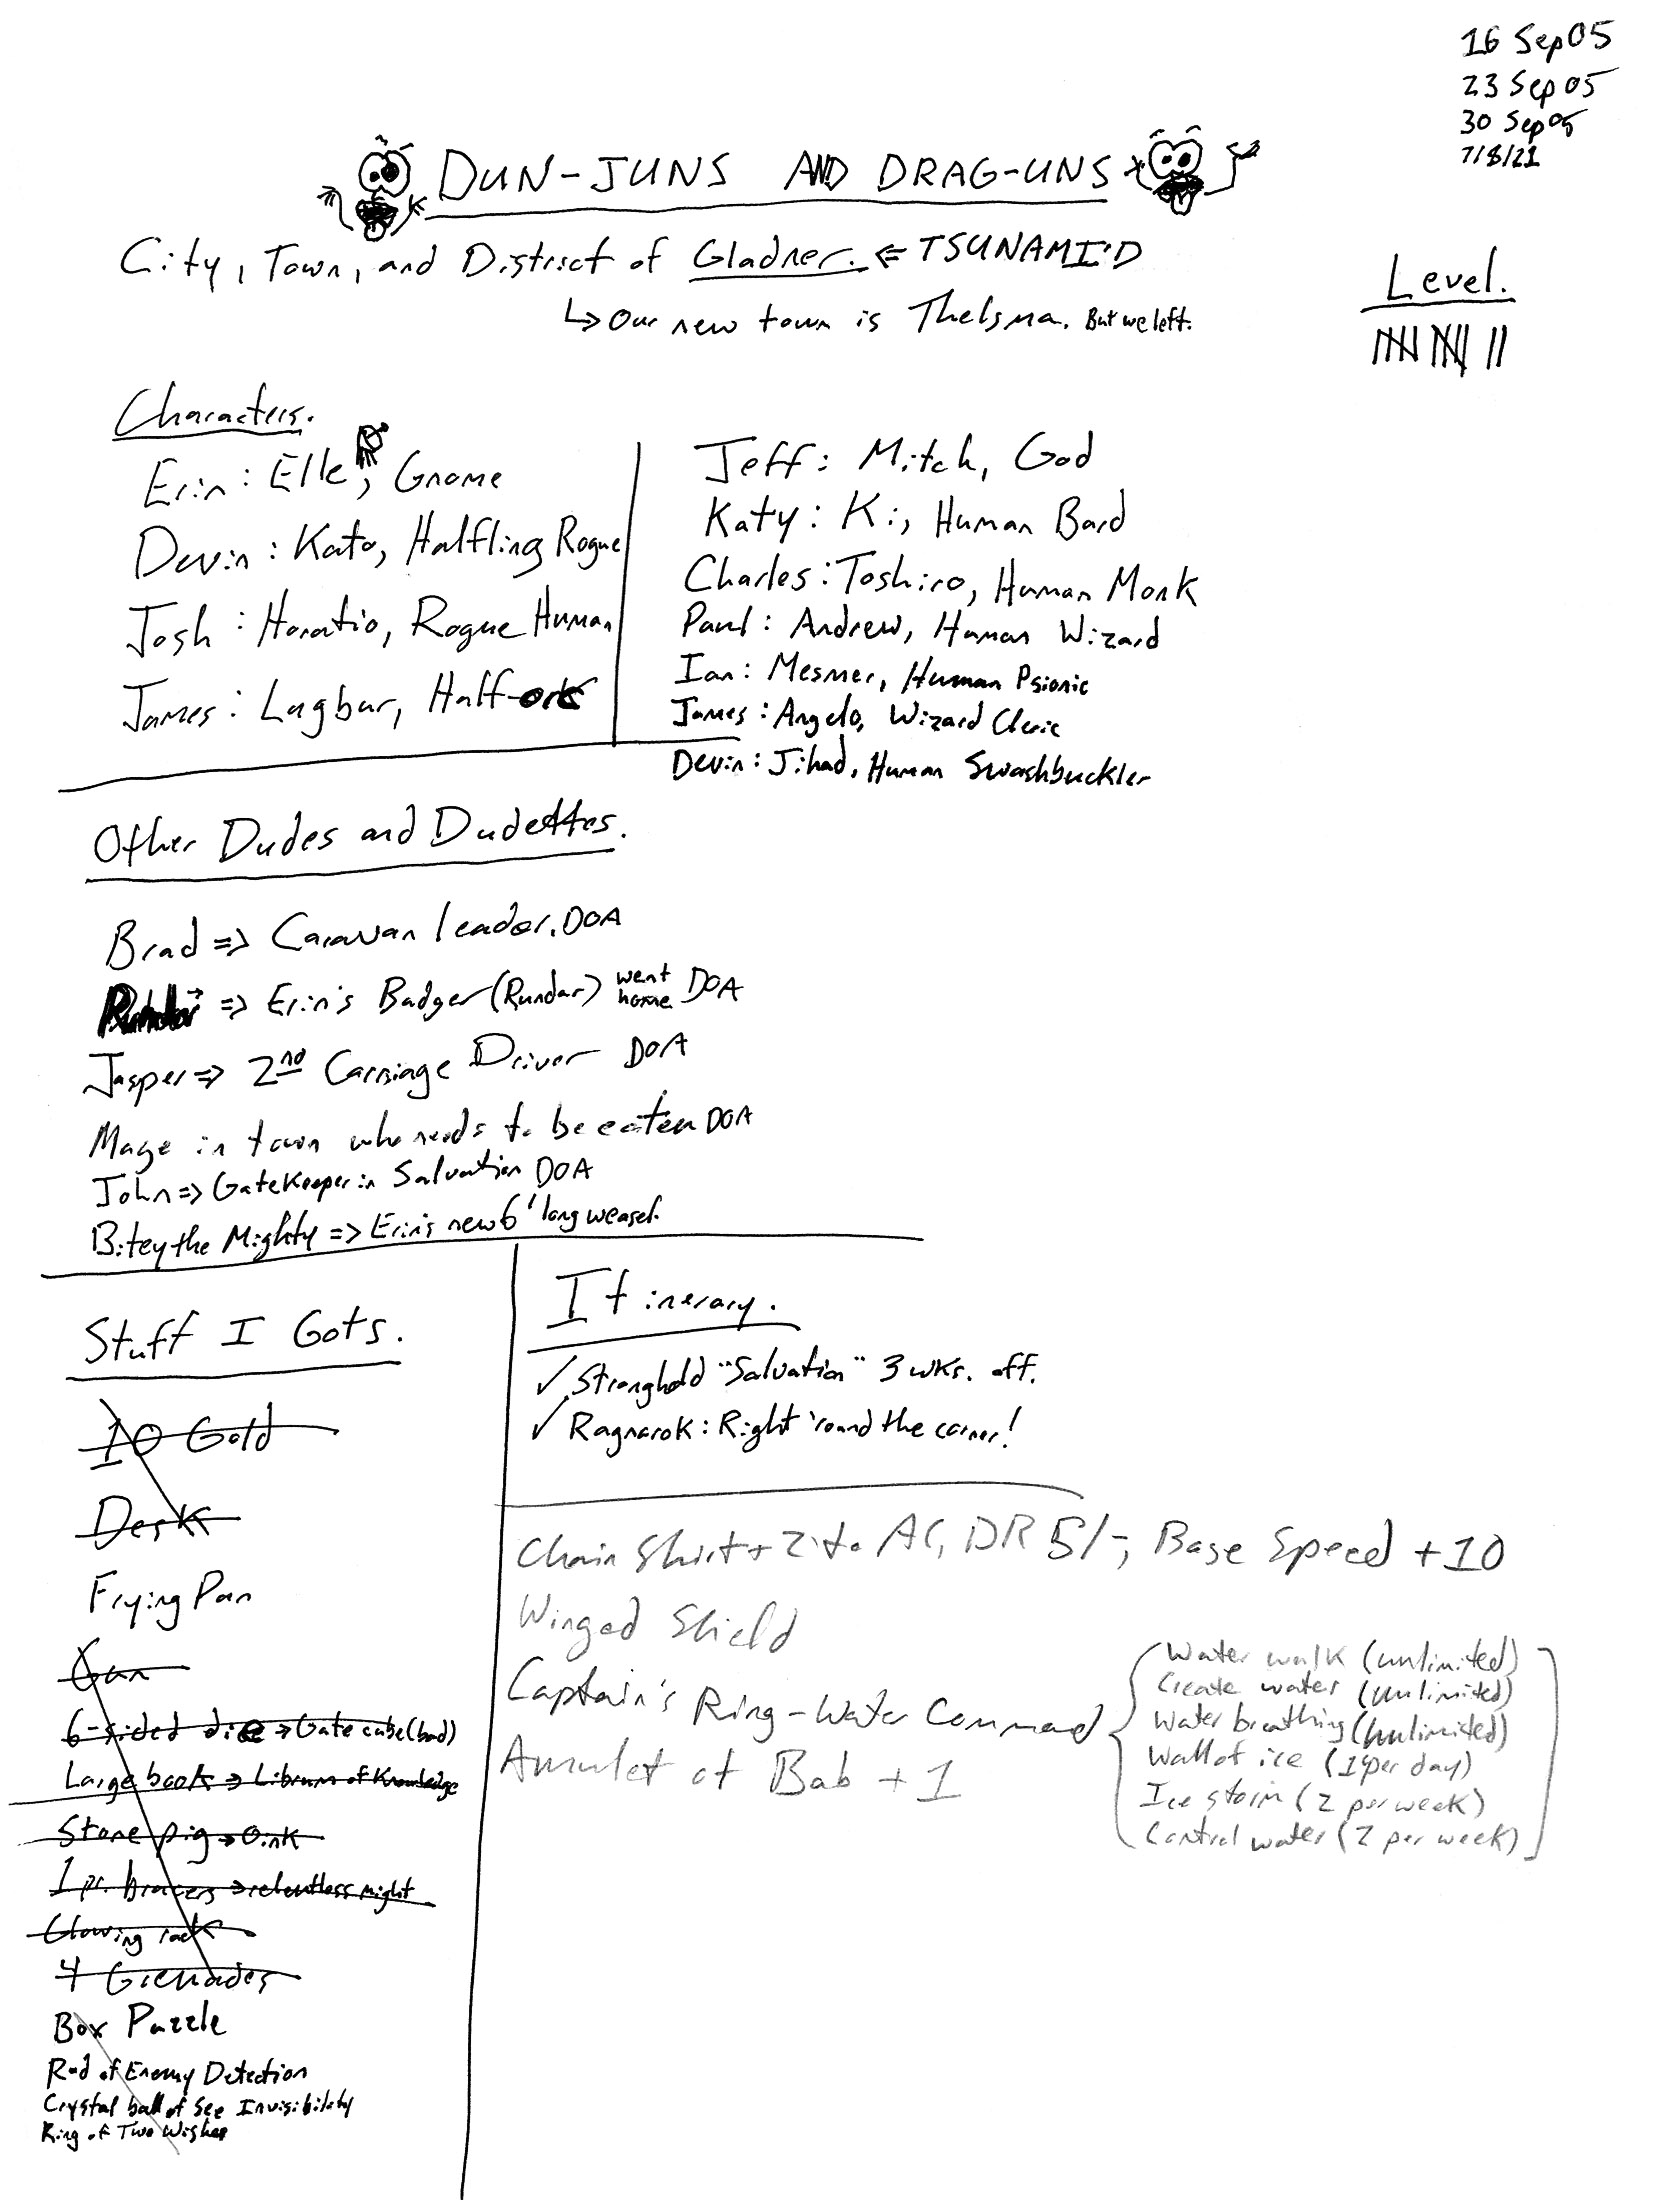 16 Sep 05
23 Sep 05
30 Sep 05
7/8/21
DUN-JUNS AND DRAG-UNS
City, Town, and District of Gladner. ⇐ TSUNAMI'D
↳ Our new town is Thelsma. But we left.
Level.
|||| |||| ||
Characters.
Erin: Elle, Gnome
Devin: Kato, Halfling Rogue
Josh: Horatio, Rogue Human
James: Lagbar, Half-ork
Jeff: Mitch, God
Katy: Ki, Human Bard
Charles: Toshiro, Human Monk
Paul: Andrew, Human Wizard
Ian: Mesmer, Human Psionic
James: Angelo, Wizard Cleric
Devin: Jihad, Human Swashbuckler
Other Dudes and Dudettes.
Brad => Caravan leader. DOA
=> Erin's Badger (Rundar) went home DOA
Jasper => 2nd Carriage Driver DOA
Mage in town who needs to be eaten DOA
John => Gatekeeper in Salvation DOA
Bitey the Mighty => Erin's new 6' long weasel.
Stuff I Gots.
10 Gold
Desk
Frying Pan
Gun
6-sided dice → Gate cube (bad)
Large book → Librum of Knowledge
Stone pig → Oink
1 pr. bracers → relentless might
Glowing rock
4 Grenades
Box Puzzle
Rod of Enemy Detection
Crystal ball of See Invisibility
Ring of Two Wishes
Itinerary.
✓ Stronghold "Salvation" 3 wks. off.
✓ Ragnarok: Right 'round the corner!
Chain Shirt + 2 to AC, DR 5/-, Base Speed +10
Winged Shield
Captain's Ring - Water Command
Water walk (unlimited)
Create water (unlimited)
Water breathing (unlimited)
Wall of ice (1 per day)
Ice storm (2 per week)
Control water (2 per week)
Amulet of Bab + 1